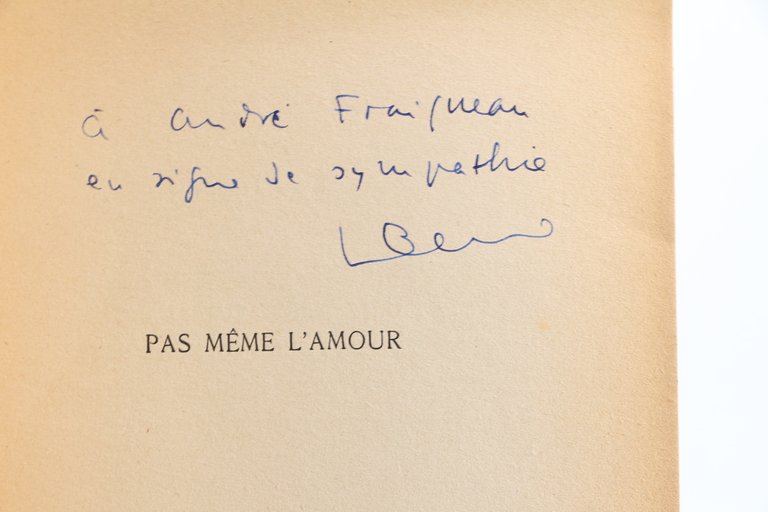 à André Fraigneau
en signe de sympathie
PAS MÊME L'AMOUR